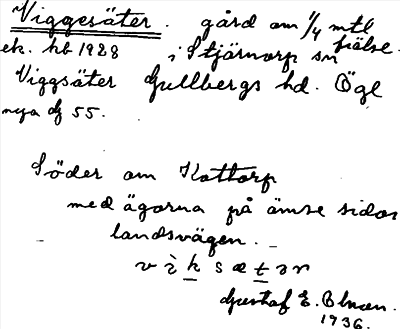 Viggesäter. gård om 1/4 mtl
ek. hb 1928 frälse.
i Stjärnorp sn
Viggsäter Gullbergs hd. Ögl
nya dj 55.
Söder om Kottorp
med ägorna på ömse sidor
landsvägen.
v i k s æ t ə r
Gustaf E. Olman.
1936.